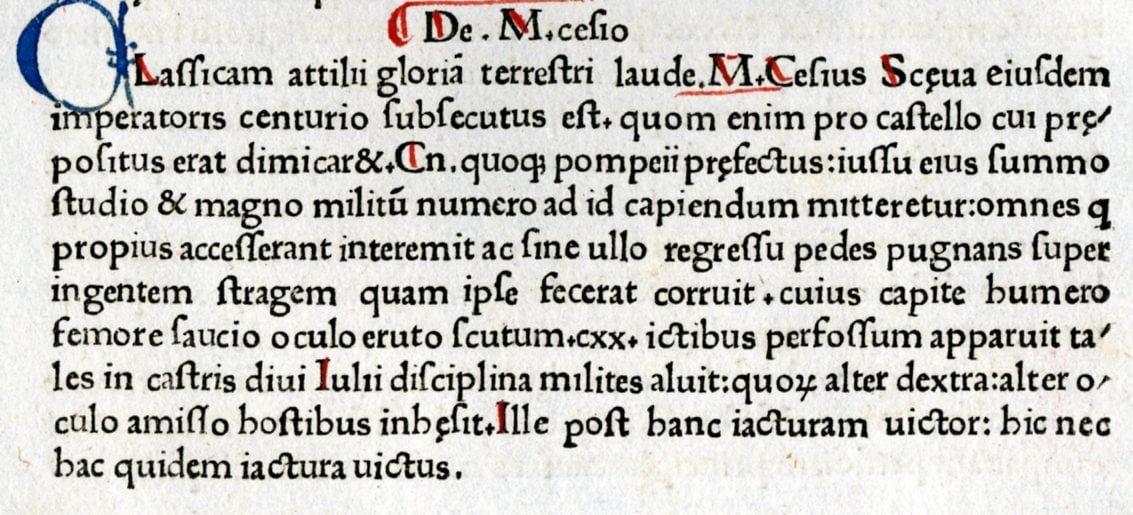 De . M.cesio
CLassicam attilii gloriā terrestri laude.M.Cesius Scęua eiusdem
imperatoris centurio subsecutus est. quom enim pro castello cui prę/
positus erat dimicar&.Cn.quoqꝫ pompeii pręfectus:iussu eius summo
studio & magno militū numero ad id capiendum mitteretur:omnes q
propius accesserant interemit ac sine ullo regressu pedes pugnans super
ingentem stragem quam ipse fecerat corruit.cuius capite humero
femore saucio oculo eruto scutum.cxx. ictibus perfossum apparuit ta/
les in castris diui Iulii disciplina milites aluit:quoꝝ alter dextra:alter o/
culo amisso hostibus inhęsit.Ille post hanc iacturam uictor: hic nec
hac quidem iactura uictus.